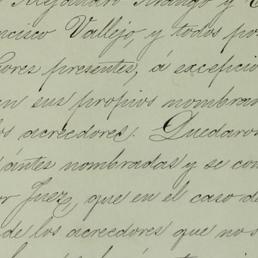 Alejandro Arango y C
ncisco Vallejo, y todos por
ores presentes, á excepcio
en sus propios nombram
los acreedores. Quedaron
dántes nombradas y se con
or Juez, que en el caso de
de los acreedores que no s